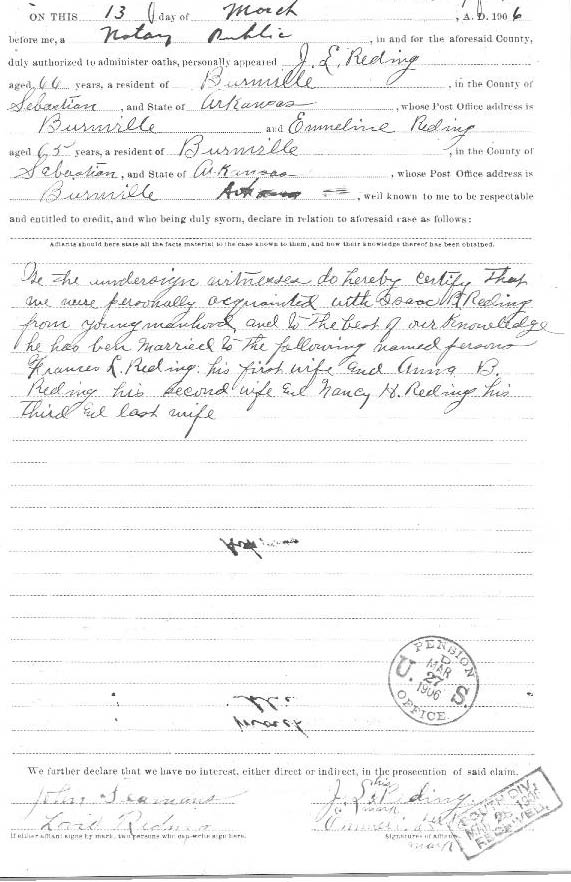 ON THIS 13 day of March, A. D. 1906
before me, a Notary Public, in and for the aforesaid County,
duly authorized to administer oaths, personally appeared J. L. Reding
aged 66 years, a resident of Burnville, in the County of
Sebastian, and State of Arkansas, whose Post Office address is
Burnville and Emmeline Reding
aged 65 years, a resident of Burnville, in the County of
Sebastian, and State of Arkansas, whose Post Office address is
Burnville, well known to me to be respectable
and entitled to credit, and who being duly sworn, declare in relation to aforesaid case as follows:
Affiants should here state all the facts material to the case known to them, and how their knowledge thereof has been obtained.
We the undersign witnesses do hereby certify That
we were personally acquainted with Isaac R Reding
from young manhood, and to the best of our Knowledge
he has ben married to the following named persons
Frances L. Reding his first wife End Anna B.
Reding his second wife End Nancy H. Redings his
third End last wife
PENSION
U. S.
MAR
27
1906
OFFICE
We further declare that we have no interest, either direct or indirect, in the prosecution of said claim.
John Seamans
J. L. his Reding
mark
If either affiant signs by mark, two persons who can write sign here.
Signatures of Affiants
mark
SOUTH DIV.
RECEIVED.